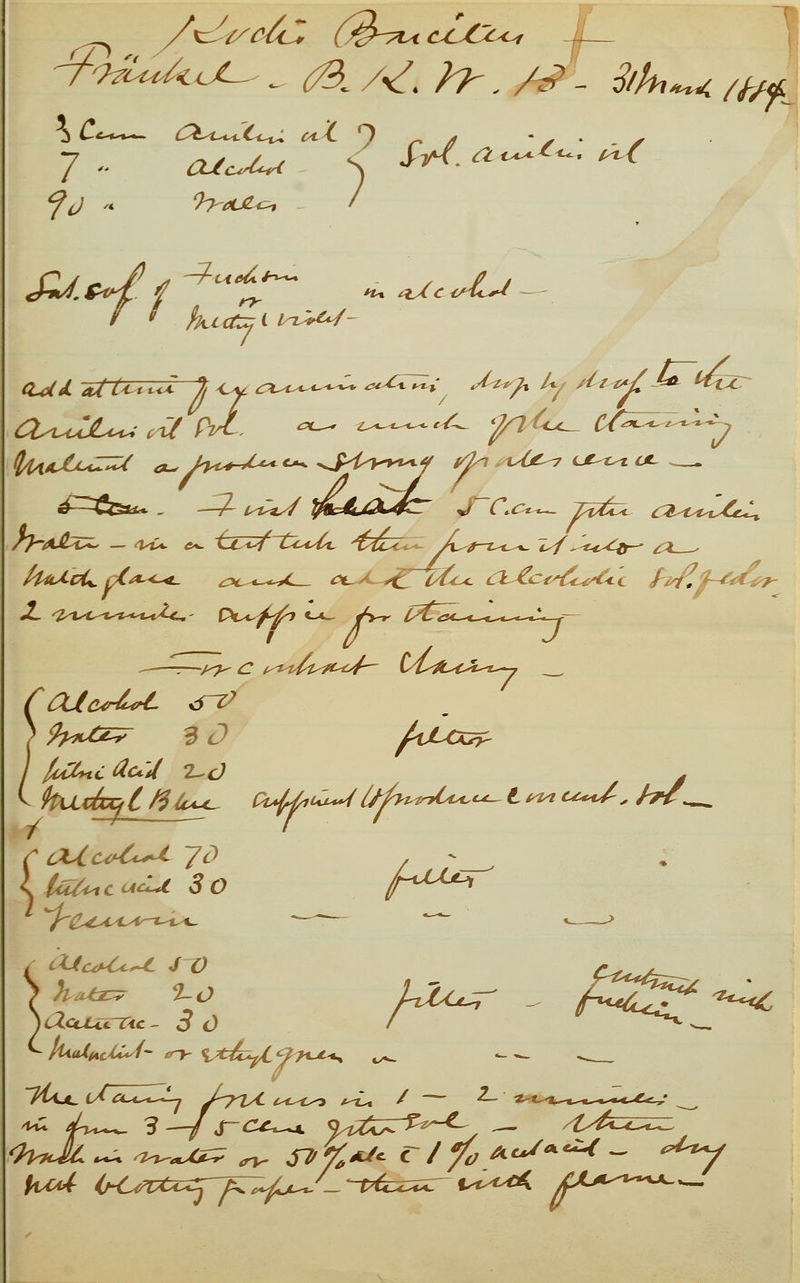 Koch's Bacillus
Fränkel - B. K. W. 13 - 31 March 1884
3 Ccm Anilin oil
7 " Alcohol } Sol. anilin oil
90 " Water
Sat. sol. of Fuchsin or Methyl violet - in alcohol —
add drop by drop to the
Anilin oil Sol. as much of the staining
Material as produces strong opalescence —
5 Ccm. - First heat 5 C.cm of the anilin
Water - in a test tube then pour it into a
Watch glass and add the alcoholic Sol. of color
2 minutes suffice for staining
For contrast staining —
Alcohol 50
Water 30 filter
Nitric Acid 20
Methyl Blue sufficient to produce concent. sol —
Alcohol 70
Nitric acid 30 filter
Vesuvin — " —
Alcohol 50
Water 20 filter - contrast with fuchsin —
Acetic ac - 30
Malachit - or ethyl green " " —
The staining in 1 — 2 minutes —
in from 3 — 5 Ccm of the Sol — then
Wash in water or 50% alc c̄ 1% acet acid — dry
with blotting paper — then with flame. —